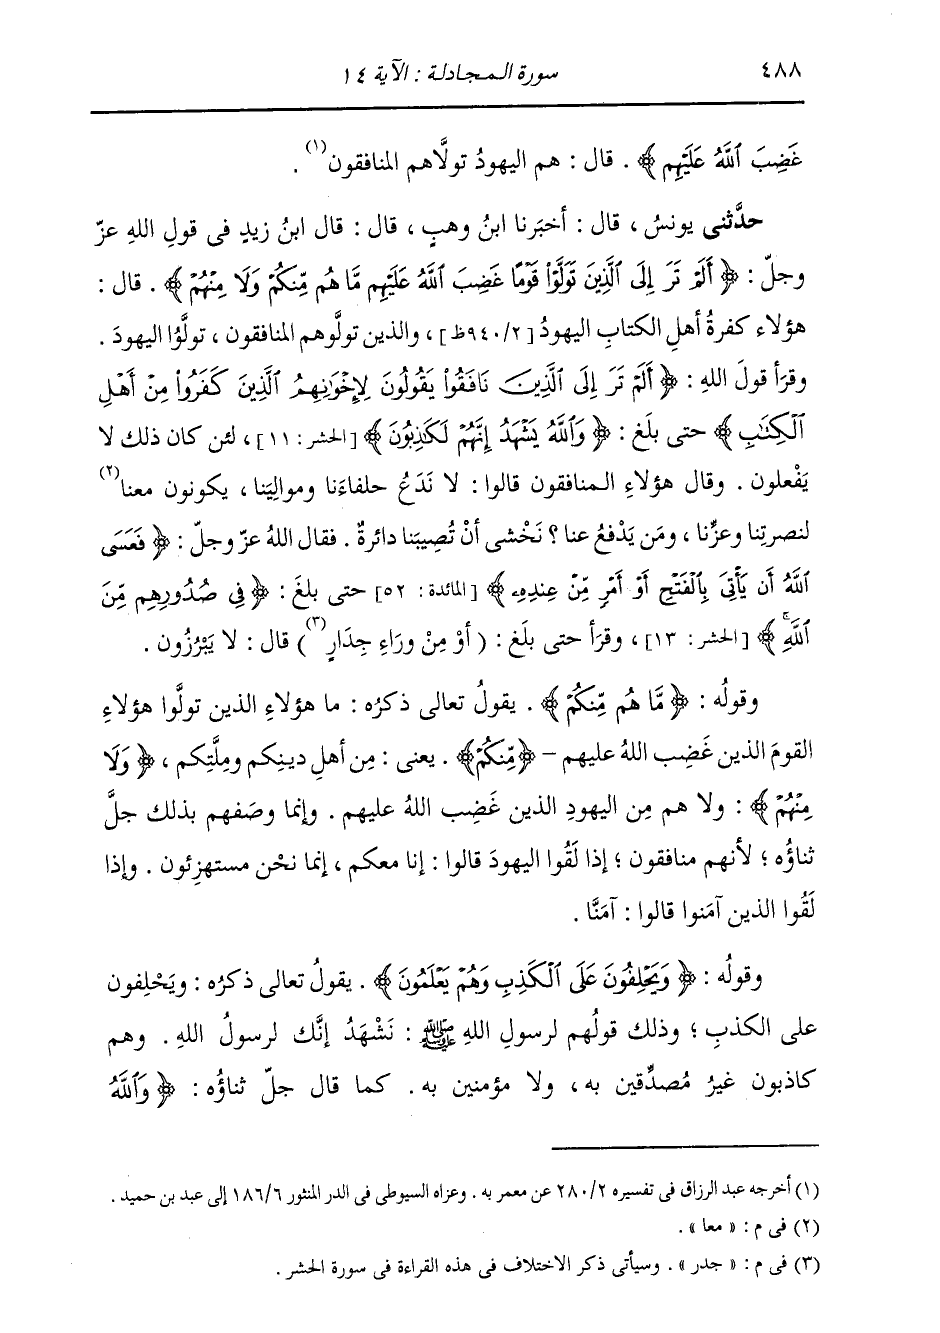 ٤٨٨ سورة المجادلة : الآية ١٤
غَضِبَ ٱللَّهُ عَلَيْهِم ﴾ . قال : هم اليهودُ تولَّاهم المنافقون(١) .
حدَّثنى يونسُ ، قال : أخبَرنا ابنُ وهبٍ ، قال : قال ابنُ زيدٍ فى قولِ اللهِ عزّ
وجلّ : ﴿ أَلَمْ تَرَ إِلَى ٱلَّذِينَ تَوَلَّوْا۟ قَوْمًا غَضِبَ ٱللَّهُ عَلَيْهِم مَّا هُم مِّنكُمْ وَلَا مِنْهُمْ ﴾ . قال :
هؤلاء كفرةُ أهلِ الكتابِ اليهودُ [ ٩٤٠/٢ظ ] ، والذين تولَّوهم المنافقون ، تولَّوُا اليهودَ .
وقرَأ قولَ اللهِ : ﴿ أَلَمْ تَرَ إِلَى ٱلَّذِينَ نَافَقُوا۟ يَقُولُونَ لِإِخْوَٰنِهِمُ ٱلَّذِينَ كَفَرُوا۟ مِنْ أَهْلِ
ٱلْكِتَٰبِ ﴾ حتى بلَغ : ﴿ وَٱللَّهُ يَشْهَدُ إِنَّهُمْ لَكَٰذِبُونَ ﴾ [ الحشر : ١١ ] ، لئن كان ذلك لا
يَفْعلون . وقال هؤلاءِ المنافقون قالوا : لا نَدَعُ حلفاءَنا وموالِيَنا ، يكونون معنا(٢)
لنصرتِنا وعزِّنا ، ومَن يَدْفعُ عنا ؟ نَخْشى أنْ تُصِيبَنا دائرةٌ . فقال اللهُ عزّ وجلّ : ﴿ فَعَسَى
ٱللَّهُ أَن يَأْتِىَ بِٱلْفَتْحِ أَوْ أَمْرٍ مِّنْ عِندِهِۦ ﴾ [ المائدة : ٥٢] حتى بلَغ : ﴿ فِى صُدُورِهِم مِّنَ
ٱللَّهِ ۚ ﴾ [ الحشر : ١٣] ، وقرَأ حتى بلَغ : ( أوْ مِنْ وراءِ جِدَارٍ(٣) ) قال : لا يَبْرُزون .
وقولُه : ﴿ مَّا هُم مِّنكُمْ ﴾ . يقولُ تعالى ذكرُه : ما هؤلاءِ الذين تولَّوا هؤلاءِ
القومَ الذين غَضِب اللهُ عليهم – ﴿مِّنكُمْ﴾ . يعنى : مِن أهلِ دينِكم ومِلَّتِكم ، ﴿ وَلَا
مِنْهُمْ ﴾ : ولا هم مِن اليهودِ الذين غَضِب اللهُ عليهم . وإنما وصَفهم بذلك جلَّ
ثناؤُه ؛ لأنهم منافقون ؛ إذا لَقُوا اليهودَ قالوا : إنا معكم ، إنما نحْن مستهزِئون . وإذا
لَقُوا الذين آمَنوا قالوا : آمَنَّا .
وقولُه : ﴿ وَيَحْلِفُونَ عَلَى ٱلْكَذِبِ وَهُمْ يَعْلَمُونَ ﴾ . يقولُ تعالى ذكرُه : ويَحْلِفون
على الكذبِ ؛ وذلك قولُهم لرسولِ اللهِ ﷺ : نَشْهَدُ إنَّك لرسولُ اللهِ . وهم
كاذبون غيرُ مُصدِّقين به ، ولا مؤمنين به . كما قال جلّ ثناؤُه : ﴿ وَٱللَّهُ
(١) أخرجه عبد الرزاق فى تفسيره ٢٨٠/٢ عن معمر به . وعزاه السيوطى فى الدر المنثور ١٨٦/٦ إلى عبد بن حميد .
(٢) فى م : « معا » .
(٣) فى م : « جدر » . وسيأتى ذكر الاختلاف فى هذه القراءة فى سورة الحشر .